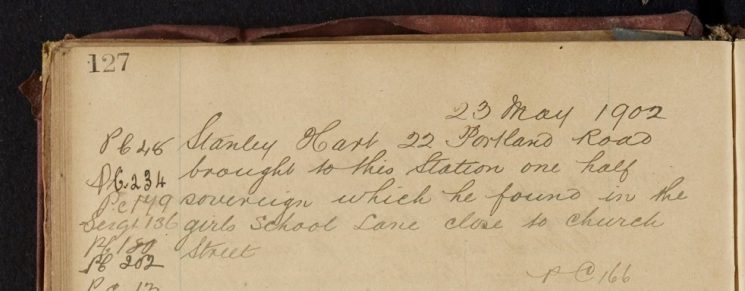 127
23 May 1902
PC 48 Stanley Hart 22 Portland Road
PC 234 brought to this Station one half
PC 149 sovereign which he found in the
Sergt 136 girls School Lane close to Church
PC 180 Street
PC 202
PC 166